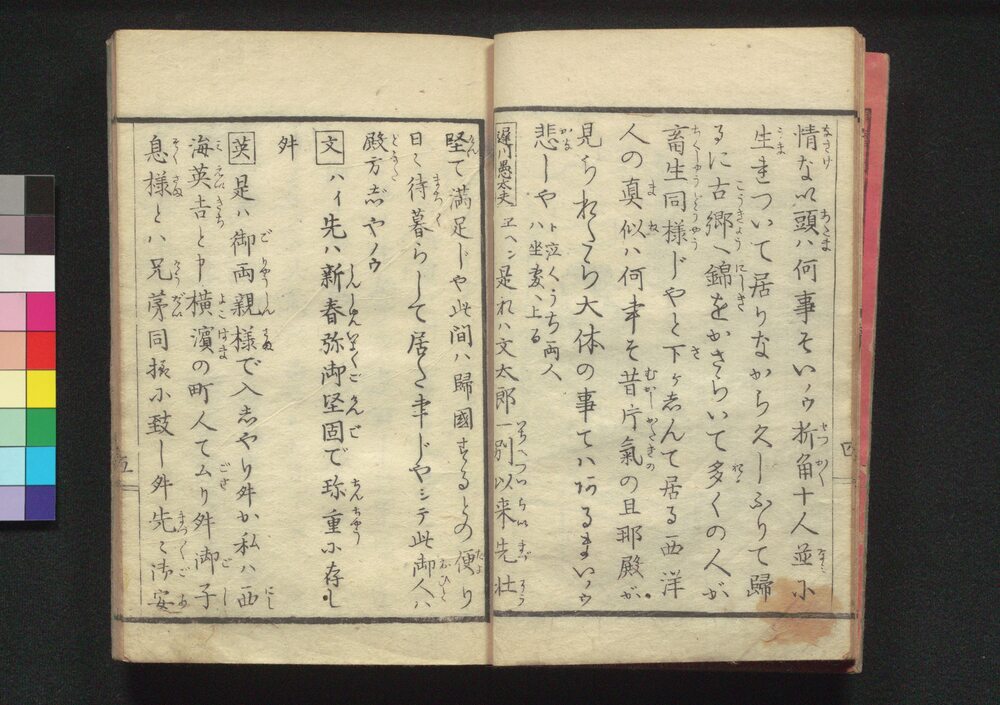 情ない頭ハ何事そいノウ折角十人並に
生まついて居りなから久しふりて歸
るに古郷へ錦をかさらいて多くの人が
畜生同様じやと下ケしんて居る西洋
人の真似ハ何事そ昔片氣の旦那殿が
見られたら大体の事てハあるまいノウ
悲しや ト泣くうち両人ハ坐敷へ上る
遅川愚太夫 ヱヘン是れハ文太郎一別以来先壮
堅て満足じや此間ハ歸國するとの便り
日々待暮らして居た事じやシテ此御人ハ
殿方じやノウ
文 ハイ先ハ新春弥御堅固で珍重に存し
舛
英 是ハ御両親様で入しやり舛か私ハ西
海英吉と申横濱の町人でムり舛御子
息様とハ兄弟同様に致し舛先々御安